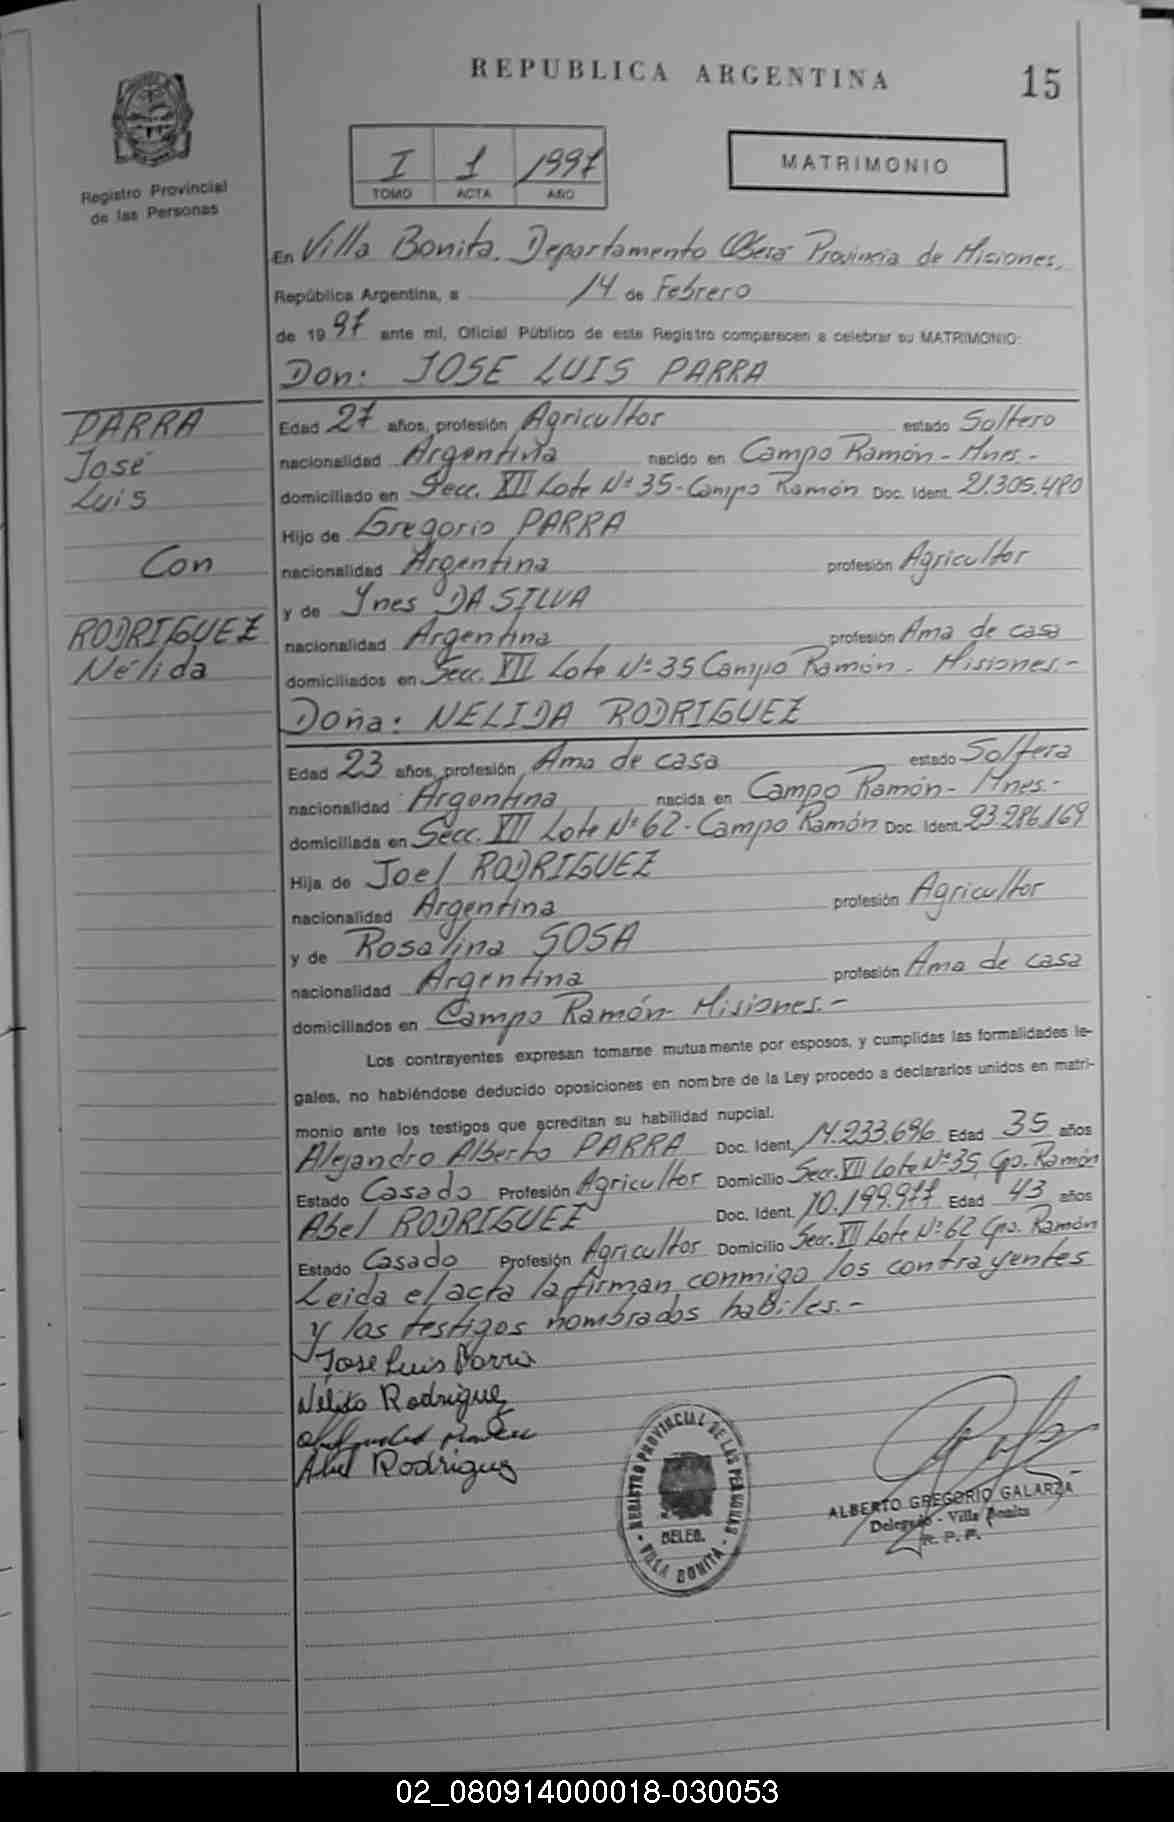 REPUBLICA ARGENTINA
15
Registro Provincial
de las Personas
I 1 1997
TOMO ACTA AÑO
MATRIMONIO
En Villa Bonita. Departamento Oberá Provincia de Misiones,
República Argentina, a 14 de Febrero
de 1997 ante mí, Oficial Público de este Registro comparecen a celebrar su MATRIMONIO:
Don: JOSE LUIS PARRA
PARRA
José
Luis
Con
RODRIGUEZ
Nélida
Edad 27 años, profesión Agricultor estado Soltero
nacionalidad Argentina nacido en Campo Ramón - Mnes.-
domiciliado en Secc. VII Lote Nº 35 - Campo Ramón Doc. Ident. 21.305.480
Hijo de Gregorio PARRA
nacionalidad Argentina profesión Agricultor
y de Ynes DA SILVA
nacionalidad Argentina profesión Ama de casa
domiciliados en Secc. VII Lote Nº 35 Campo Ramón - Misiones.-
Doña: NELIDA RODRIGUEZ
Edad 23 años, profesión Ama de casa estado Soltera
nacionalidad Argentina nacida en Campo Ramón - Mnes.-
domiciliada en Secc. VII Lote Nº 62 - Campo Ramón Doc. Ident. 23.286.169
Hija de Joel RODRIGUEZ
nacionalidad Argentina profesión Agricultor
y de Rosalina SOSA
nacionalidad Argentina profesión Ama de casa
domiciliados en Campo Ramón - Misiones.-
Los contrayentes expresan tomarse mutuamente por esposos, y cumplidas las formalidades le-
gales, no habiéndose deducido oposiciones en nombre de la Ley procedo a declararlos unidos en matri-
monio ante los testigos que acreditan su habilidad nupcial.
Alejandro Alberto PARRA Doc. Ident. 14.233.696 Edad 35 años
Estado Casado Profesión Agricultor Domicilio Secc. VII Lote Nº 35, Cpo. Ramón
Abel RODRIGUEZ Doc. Ident. 10.199.977 Edad 43 años
Estado Casado Profesión Agricultor Domicilio Secc. VII Lote Nº 62 Cpo. Ramón
Leida el acta la firman conmigo los contrayentes
y los testigos nombrados habiles.-
Jose Luis Parra
Nélida Rodriguez
Abel Rodriguez
REGISTRO PROVINCIAL DE LAS PERSONAS
DELEG.
- VILLA BONITA -
ALBERTO GREGORIO GALARZA
Delegado - Villa Bonita
R. P. P.
02_080914000018-030053